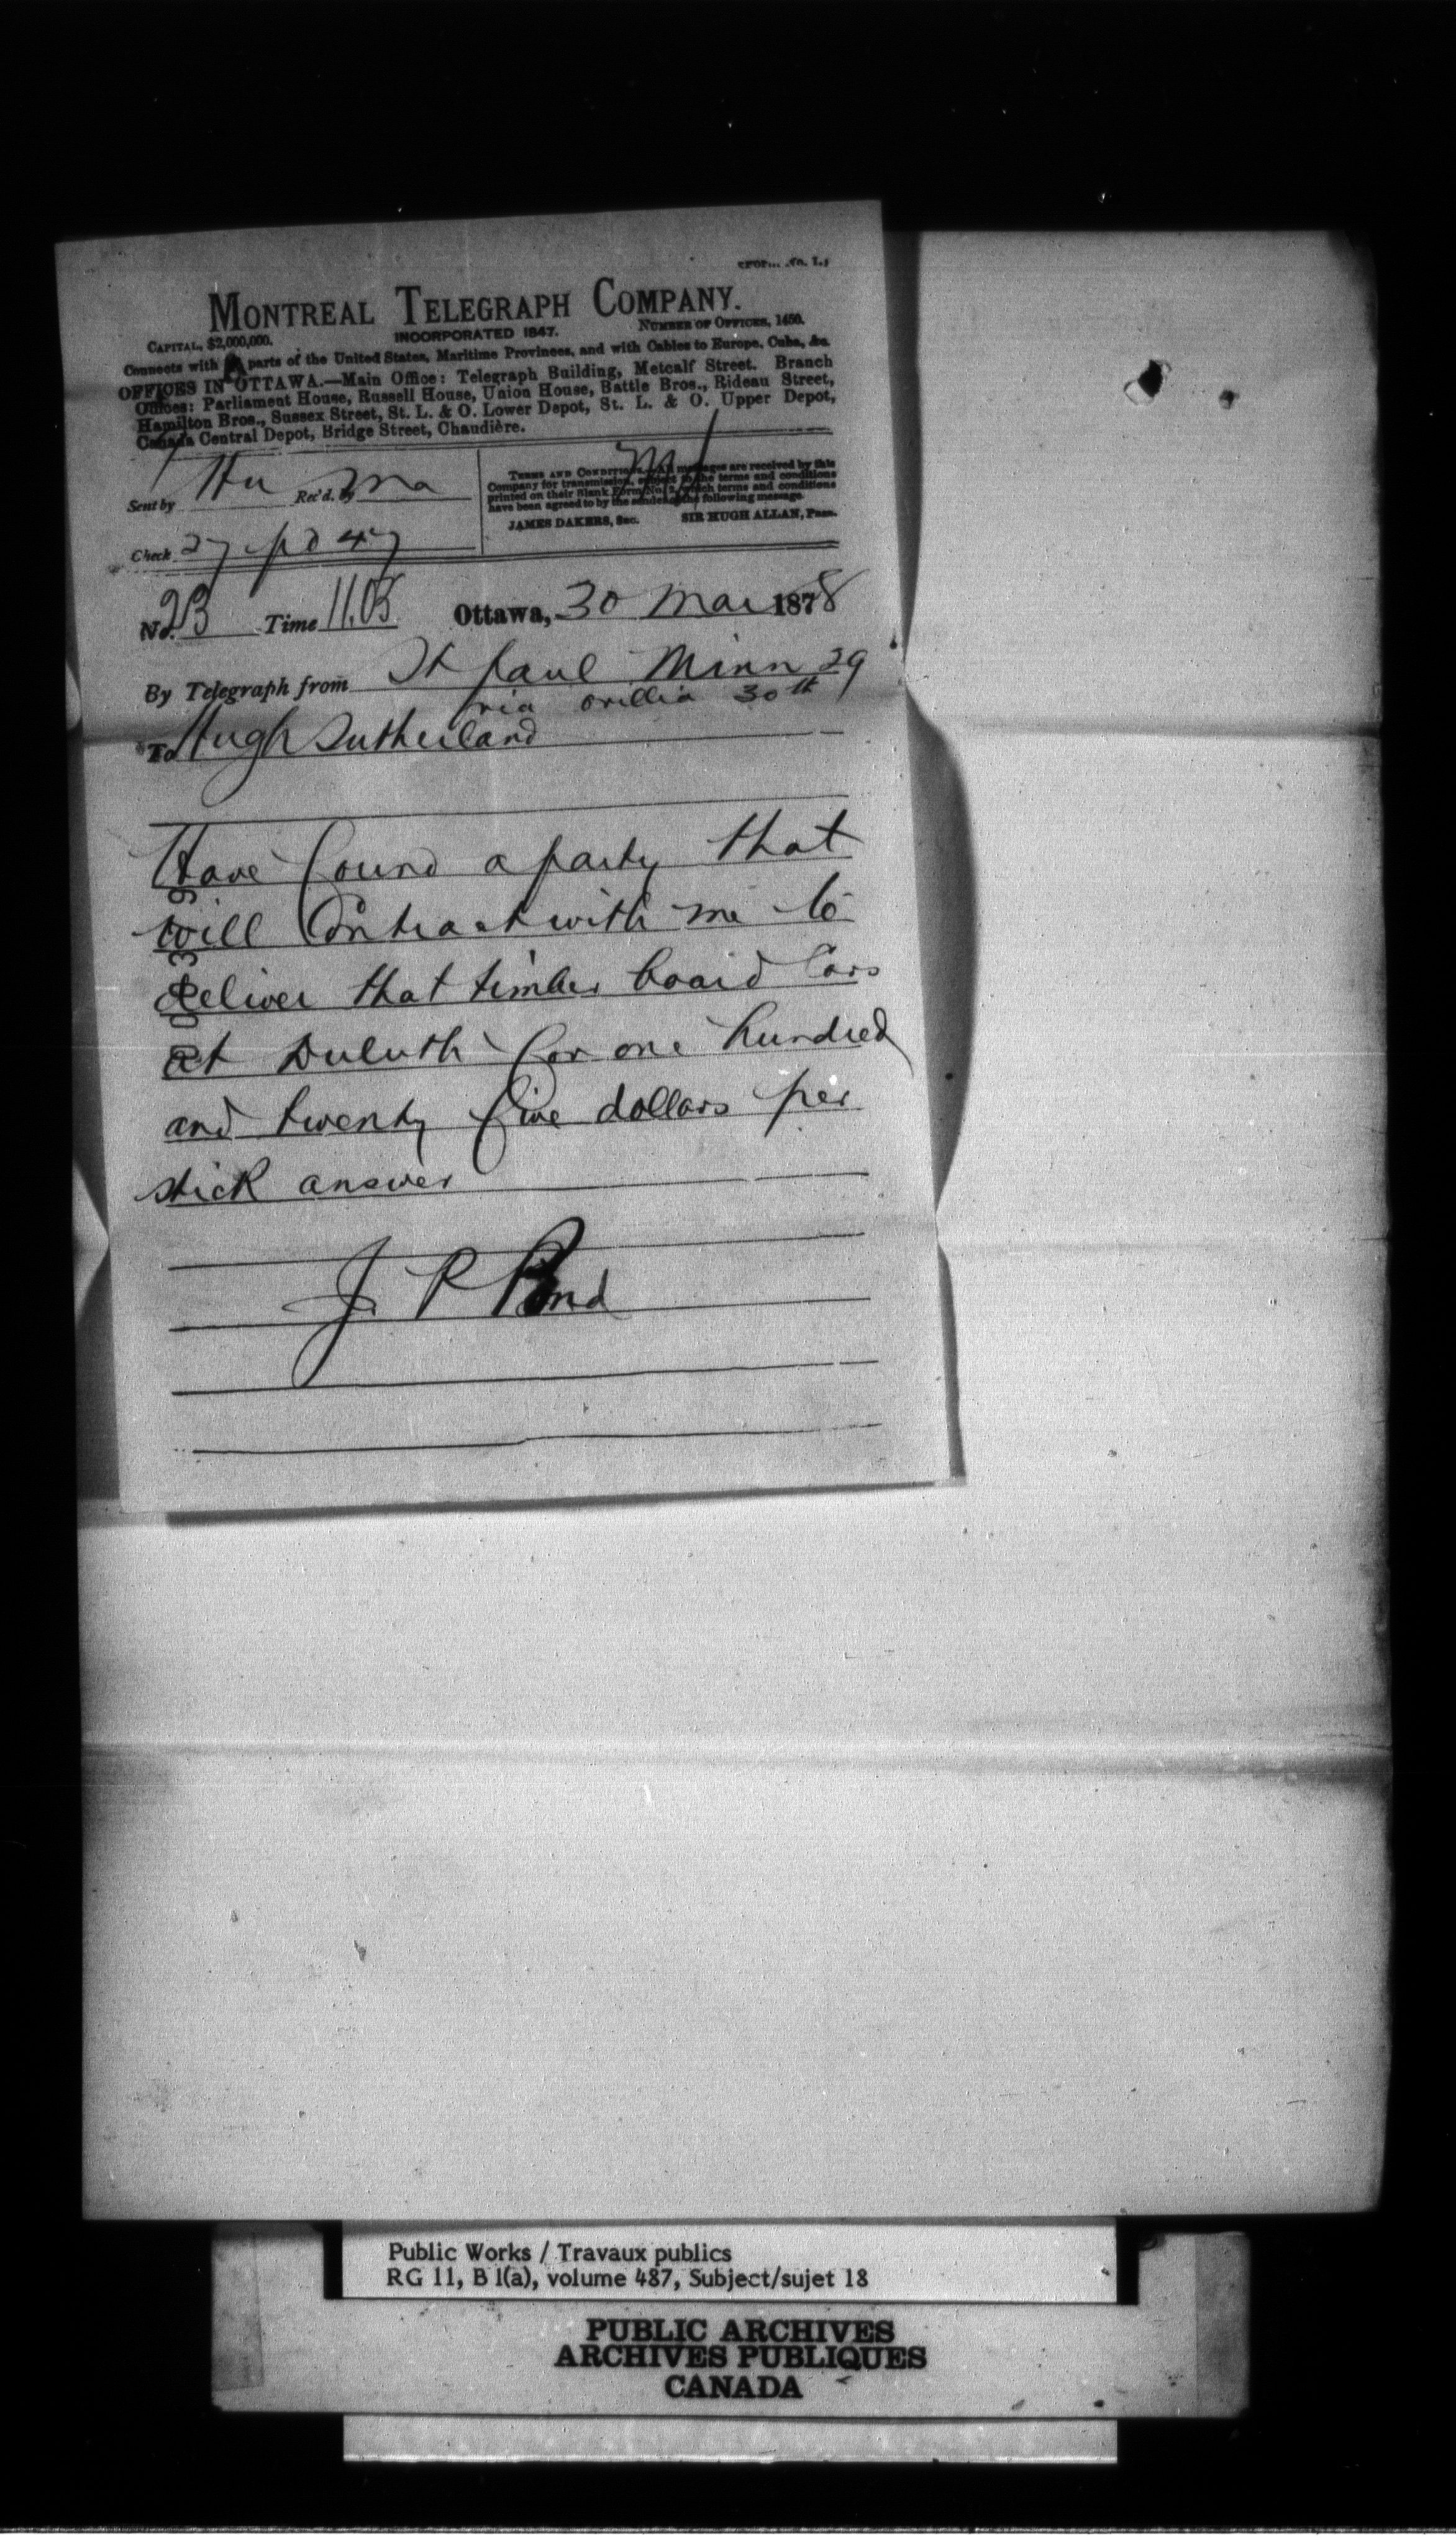 MONTREAL TELEGRAPH COMPANY.
CAPITAL, $2,000,000. INCORPORATED 1847. NUMBER OF OFFICES, 1450.
Connects with parts of the United States, Maritime Provinces, and with Cables to Europe, Cuba, &c.
OFFICES IN OTTAWA.—Main Office: Telegraph Building, Metcalf Street. Branch
Offices: Parliament House, Russell House, Union House, Battle Bros., Rideau Street,
Hamilton Bros., Sussex Street, St. L. & O. Lower Depot, St. L. & O. Upper Depot,
Canada Central Depot, Bridge Street, Chaudière.
Sent by Hu Rec'd. by Ma
Check 27 pd 47
TERMS AND CONDITIONS.—All messages are received by this
Company for transmission, subject to the terms and conditions
printed on their Blank Form No. 2, which terms and conditions
have been agreed to by the sender of the following message.
JAMES DAKERS, Sec. SIR HUGH ALLAN, Pres.
No. 23 Time 11.05 Ottawa, 30 Mar 1878
By Telegraph from St Paul Minn 29
via orillia 30th
To Hugh Sutherland
Have found a party that
will Contract with me to
deliver that timber board Cars
at Duluth for one hundred
and twenty five dollars per
stick answer
J. P Pond
Public Works / Travaux publics
RG 11, B 1(a), volume 487, Subject/sujet 18
PUBLIC ARCHIVES
ARCHIVES PUBLIQUES
CANADA